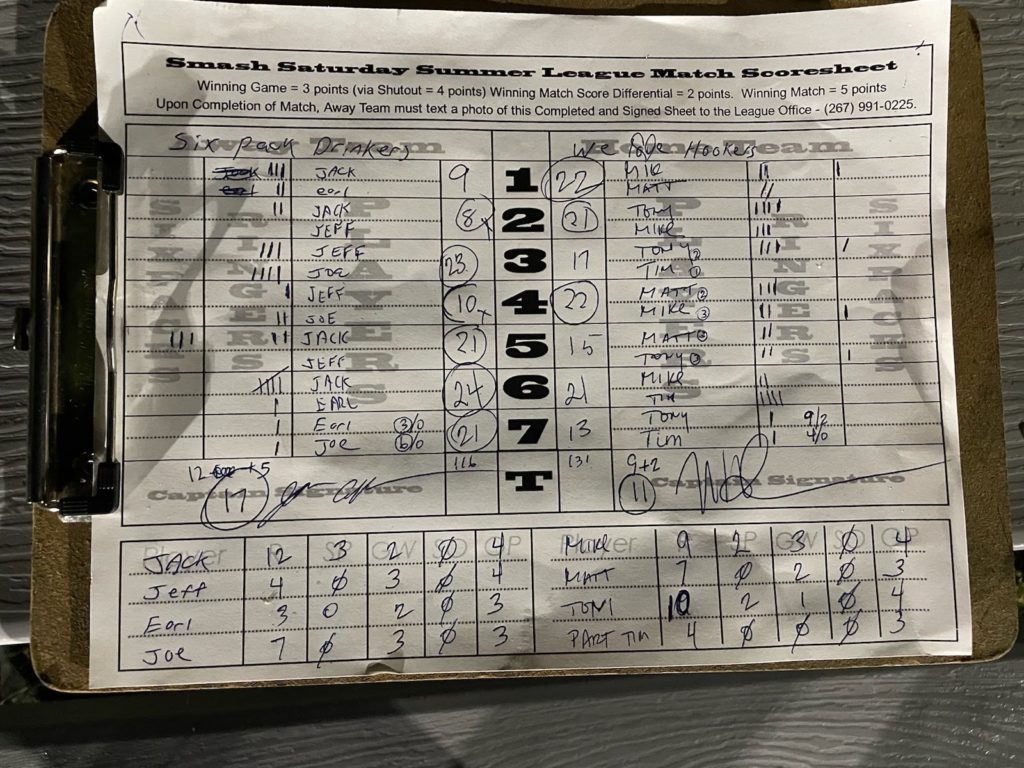 Smash Saturday Summer League Match Scoresheet
Winning Game = 3 points (via Shutout = 4 points) Winning Match Score Differential = 2 points. Winning Match = 5 points
Upon Completion of Match, Away Team must text a photo of this Completed and Signed Sheet to the League Office - (267) 991-0225.
Six pack Drinkers We Hookers
JACK 9 1 22 MIKE
earl MATT
JACK 8 2 21 TONY
JEFF MIKE
JEFF 23 3 17 TONY 2
JOE TIM 1
JEFF 10 4 22 MATT 2
JOE MIKE 3
JACK 21 5 15 MATT
JEFF TONY 3
JACK 24 6 21 MIKE
EARL TIM
Earl 3/0 21 7 13 TONY 9/2
JOE 6/0 Tim 4/0
12 +5 116 T 131 9+2
17 Captain Signature 11 Captain Signature
Player P SP GW SO GP Player P SP GW SO GP
JACK 12 3 2 0 4 MIKE 9 2 3 0 4
Jeff 4 0 3 0 4 MATT 7 0 2 0 3
Earl 3 0 2 0 3 TONY 10 2 1 0 4
Joe 7 0 3 0 3 PART TIM 4 0 0 0 3